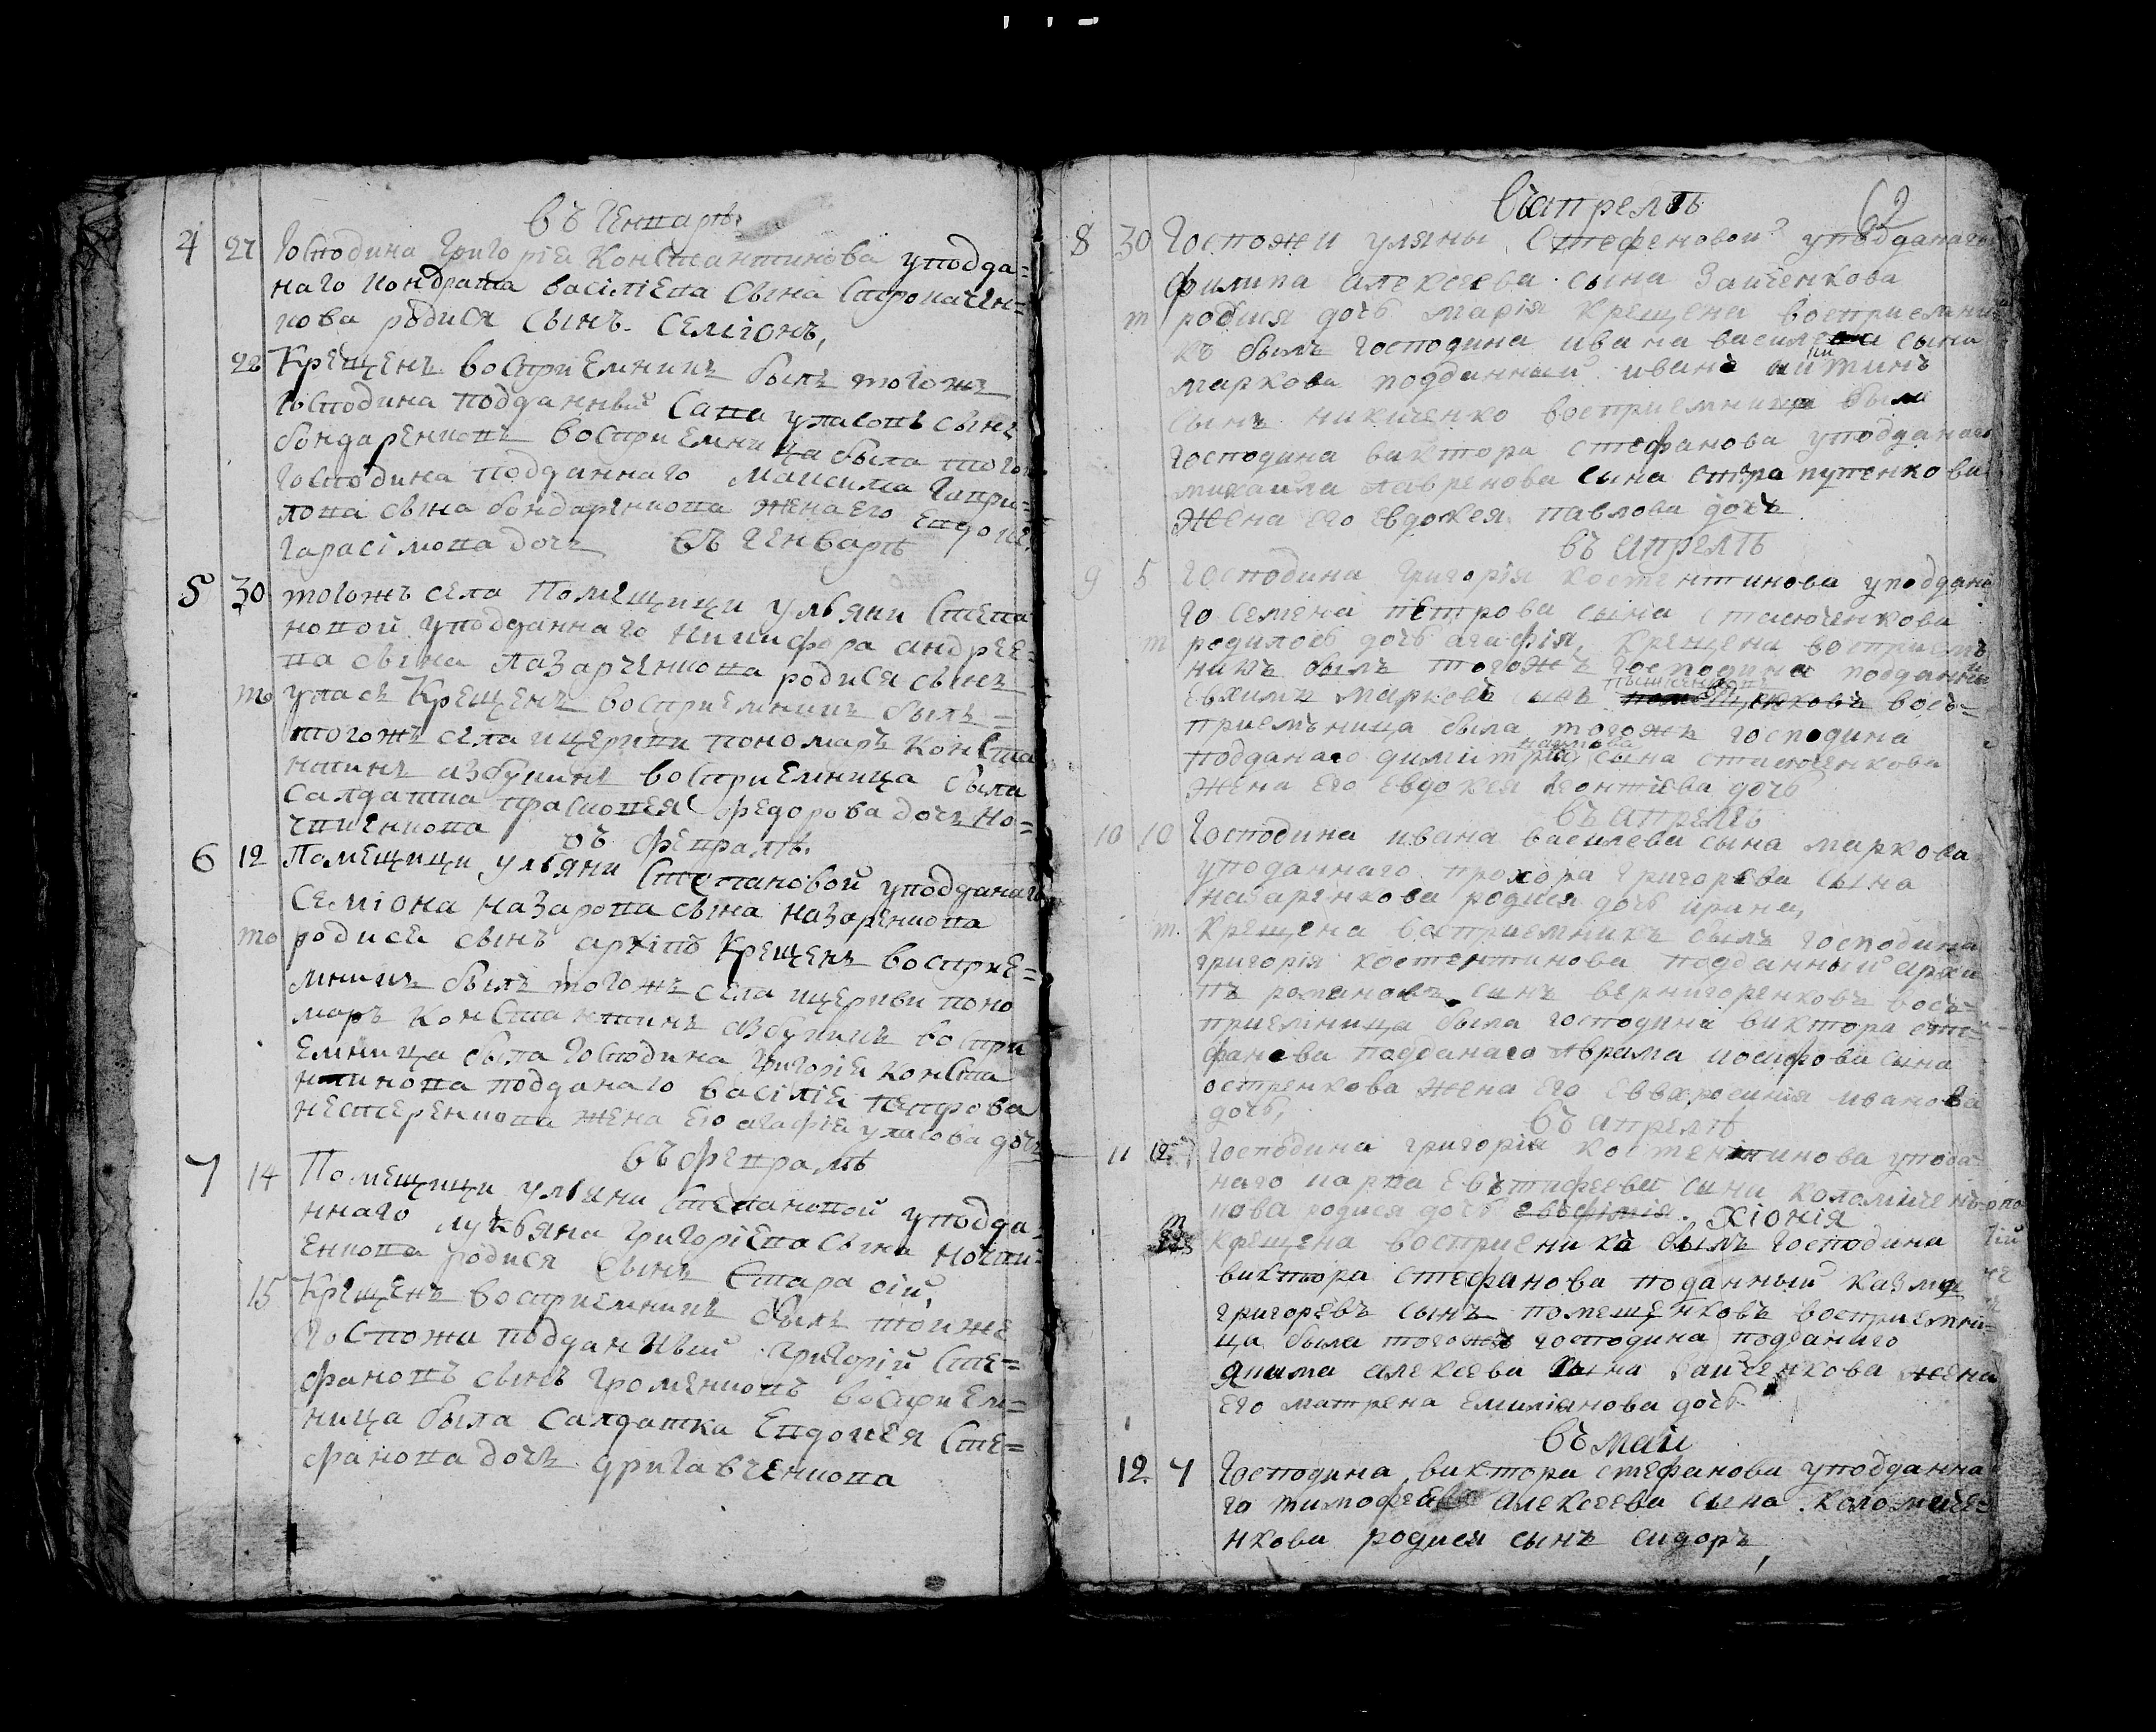 въ Генварѣ.
4 27 Господина Григорія Константинова уподда=
наго Кондрата Василіева сына Строкачен=
кова родися сынъ. Семіонъ,
28 Крещенъ воспріемникъ былъ тогожъ
господина подданный Сава Уласовъ сынъ
Бондаренковъ восприемница была тогож
господина подданнаго Максима Гаври=
лова сына Бондаренкова жена его Евдокѣ.
Гарасімова дочъ въ Генварѣ
5 30 тогожъ села Помещици Ульяни Степа
новой уподданнаго Никифора Андрее=
ва сына Лазарченкова родися сынъ
то Уласъ Крещенъ восприемникъ былъ=
тогожъ села ицеркви пономаръ Конста
нтинъ Азбукинъ восприемница была
салдатка Прасковея Федорова дочъ Но=
въ февралѣ.
6 12 Помещици Ульяни Степановой уподданаго
Семіона Назарова сына Назаренкова
то родися сынъ Архіпъ Крещенъ восприе=
мникъ былъ тогожъ села ицеркви поно
маръ Константинъ Азбукинъ воспри
емница была господина Григорія Конста
нтинова подданаго Василіе Петрова
Нестеренкова жена его Агафіе Уласова дочъ
въ февралѣ
7 14 Помещици Ульяни Степановой уподда=
ннаго Лукъяна Григоріева сына
енкова родися сынъ
15 Крещенъ восприемникъ былъ тоиже
госпожи подданный Григорій Сте=
фановъ сынъ Громенковъ восприем=
ница была салдатка Евдокея Сте=
фанова дочъ
въ апрелѣ 62
8 30 Госпожи Уляны Стефеновой уподданаго
Филипа Алексеева сына Заиченкова
т родися дочъ Марія Крещена восприемни
къ былъ господина Ивана Василева сына
Маркова подданный Иванъ
сынъ Никиченко восприемница была
господина Виктора Стефанова уподданаго
Михаила Лавренова сына
Жена его Евдокея Павлова дочъ
въ апрелѣ
9 5 Господина Григорія Костентинова уподдана
го Семена Петрова сына Стасюченкова
т родилосъ дочъ Агафія, Крещена восприем
никъ былъ тогожъ господина подданны
Евхимъ Марковъ сынъ вос=
приемъница была тогожъ господина
подданаго Димитрія Наумова сына Стасюченкова
Жена его Евдокея Леонтіева дочъ
въ апрелѣ
10 10 Господина Ивана Василева сына Маркова
уподаннаго Прохора Григорева сына
Назаренкова родися дочъ Ирина,
т. Крещена восприемникъ былъ господина
Григорія Костентинова подданный Архи
пъ Романовъ сынъ Вернигоренковъ вось=
приемница была господина Виктора Сте=
фанова подданаго Аврама Иосифова сына
Остренкова жена его Еввхросинія Иванова
дочъ, въ апрелѣ
11 12 Господина Григорія Костентинова упода
наго Карпа Евътифеева сина Коломиченъ
кова родися дочъ Евофімія. Хіонія
т Крещена восприеникъ былъ господина
Виктора Стефанова поданный Казма
Григоревъ сынъ Помещенковъ восприемни=
ца была тогожъ господина подданаго
Якима Алексеева сына Заиченкова жена
его Матрена Емиліанова дочъ
въ маи
12 4 Господина Виктора Стефанова уподданна
го Тимофея Алексеева сына Коломиче
нкова родися сынъ Сидоръ,